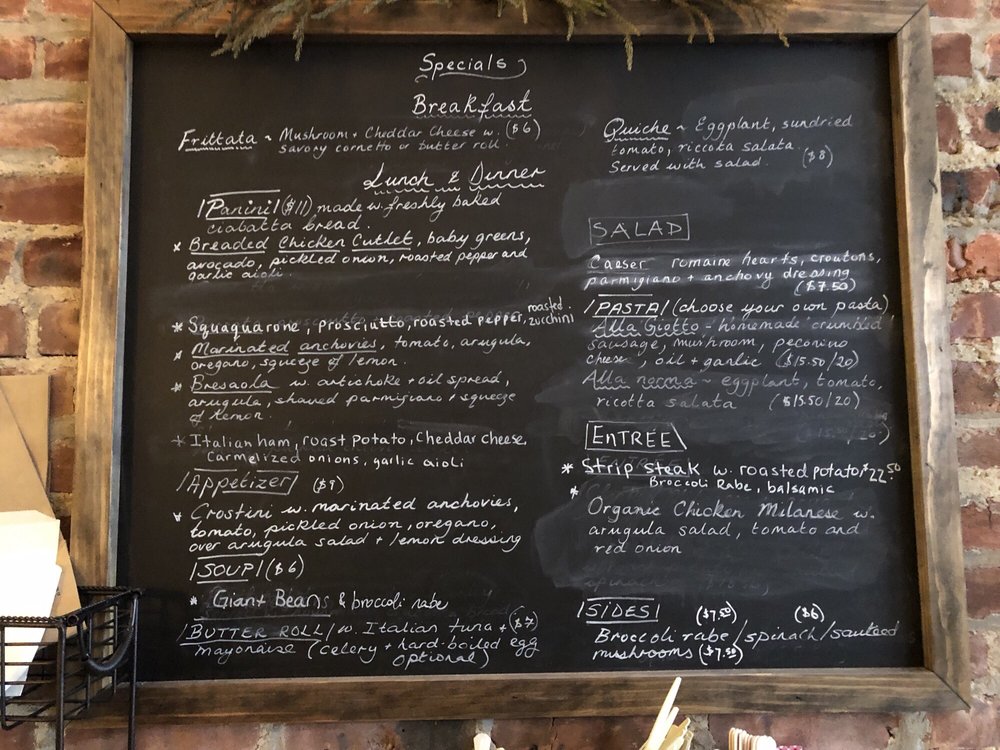 Specials
Breakfast
Frittata ~ Mushroom + Cheddar Cheese w. ($6)
savory cornetto or butter roll.
Quiche ~ Eggplant, sundried
tomato, riccota salata.
Served with salad. ($8)
Lunch & Dinner
Panini ($11) made w. freshly baked
ciabatta bread.
* Breaded Chicken Cutlet, baby greens,
avocado, pickled onion, roasted pepper and
garlic aioli.
* Squaquarone, prosciutto, roasted pepper, roasted
zucchini
* Marinated anchovies, tomato, arugula,
oregano, squeeze of lemon.
* Bresaola w. artichoke + oil spread,
arugula, shaved parmigiano + squeeze
of lemon.
* Italian ham, roast potato, Cheddar cheese,
Carmelized onions, garlic aioli
Appetizer ($9)
* Crostini w. marinated anchovies,
tomato, pickled onion, oregano,
over arugula salad + lemon dressing
SOUP ($6)
* Giant Beans & broccoli rabe
BUTTER ROLL w. Italian tuna + ($7)
mayonaise (celery + hard-boiled egg
optional)
SALAD
Caeser romaine hearts, croutons,
parmigiano + anchovy dressing
($7.50)
PASTA (choose your own pasta)
Alla Giotto - homemade crumbled
sausage, mushroom, pecorino
cheese, oil + garlic ($15.50/20)
Alla norma ~ eggplant, tomato,
ricotta salata ($15.50/20)
ENTREE
* Strip steak w. roasted potato, $22.50
Broccoli Rabe, balsamic
* Organic Chicken Milanese w.
arugula salad, tomato and
red onion
SIDES ($7.50) ($6)
Broccoli rabe/spinach/sauteed
mushrooms ($7.50)